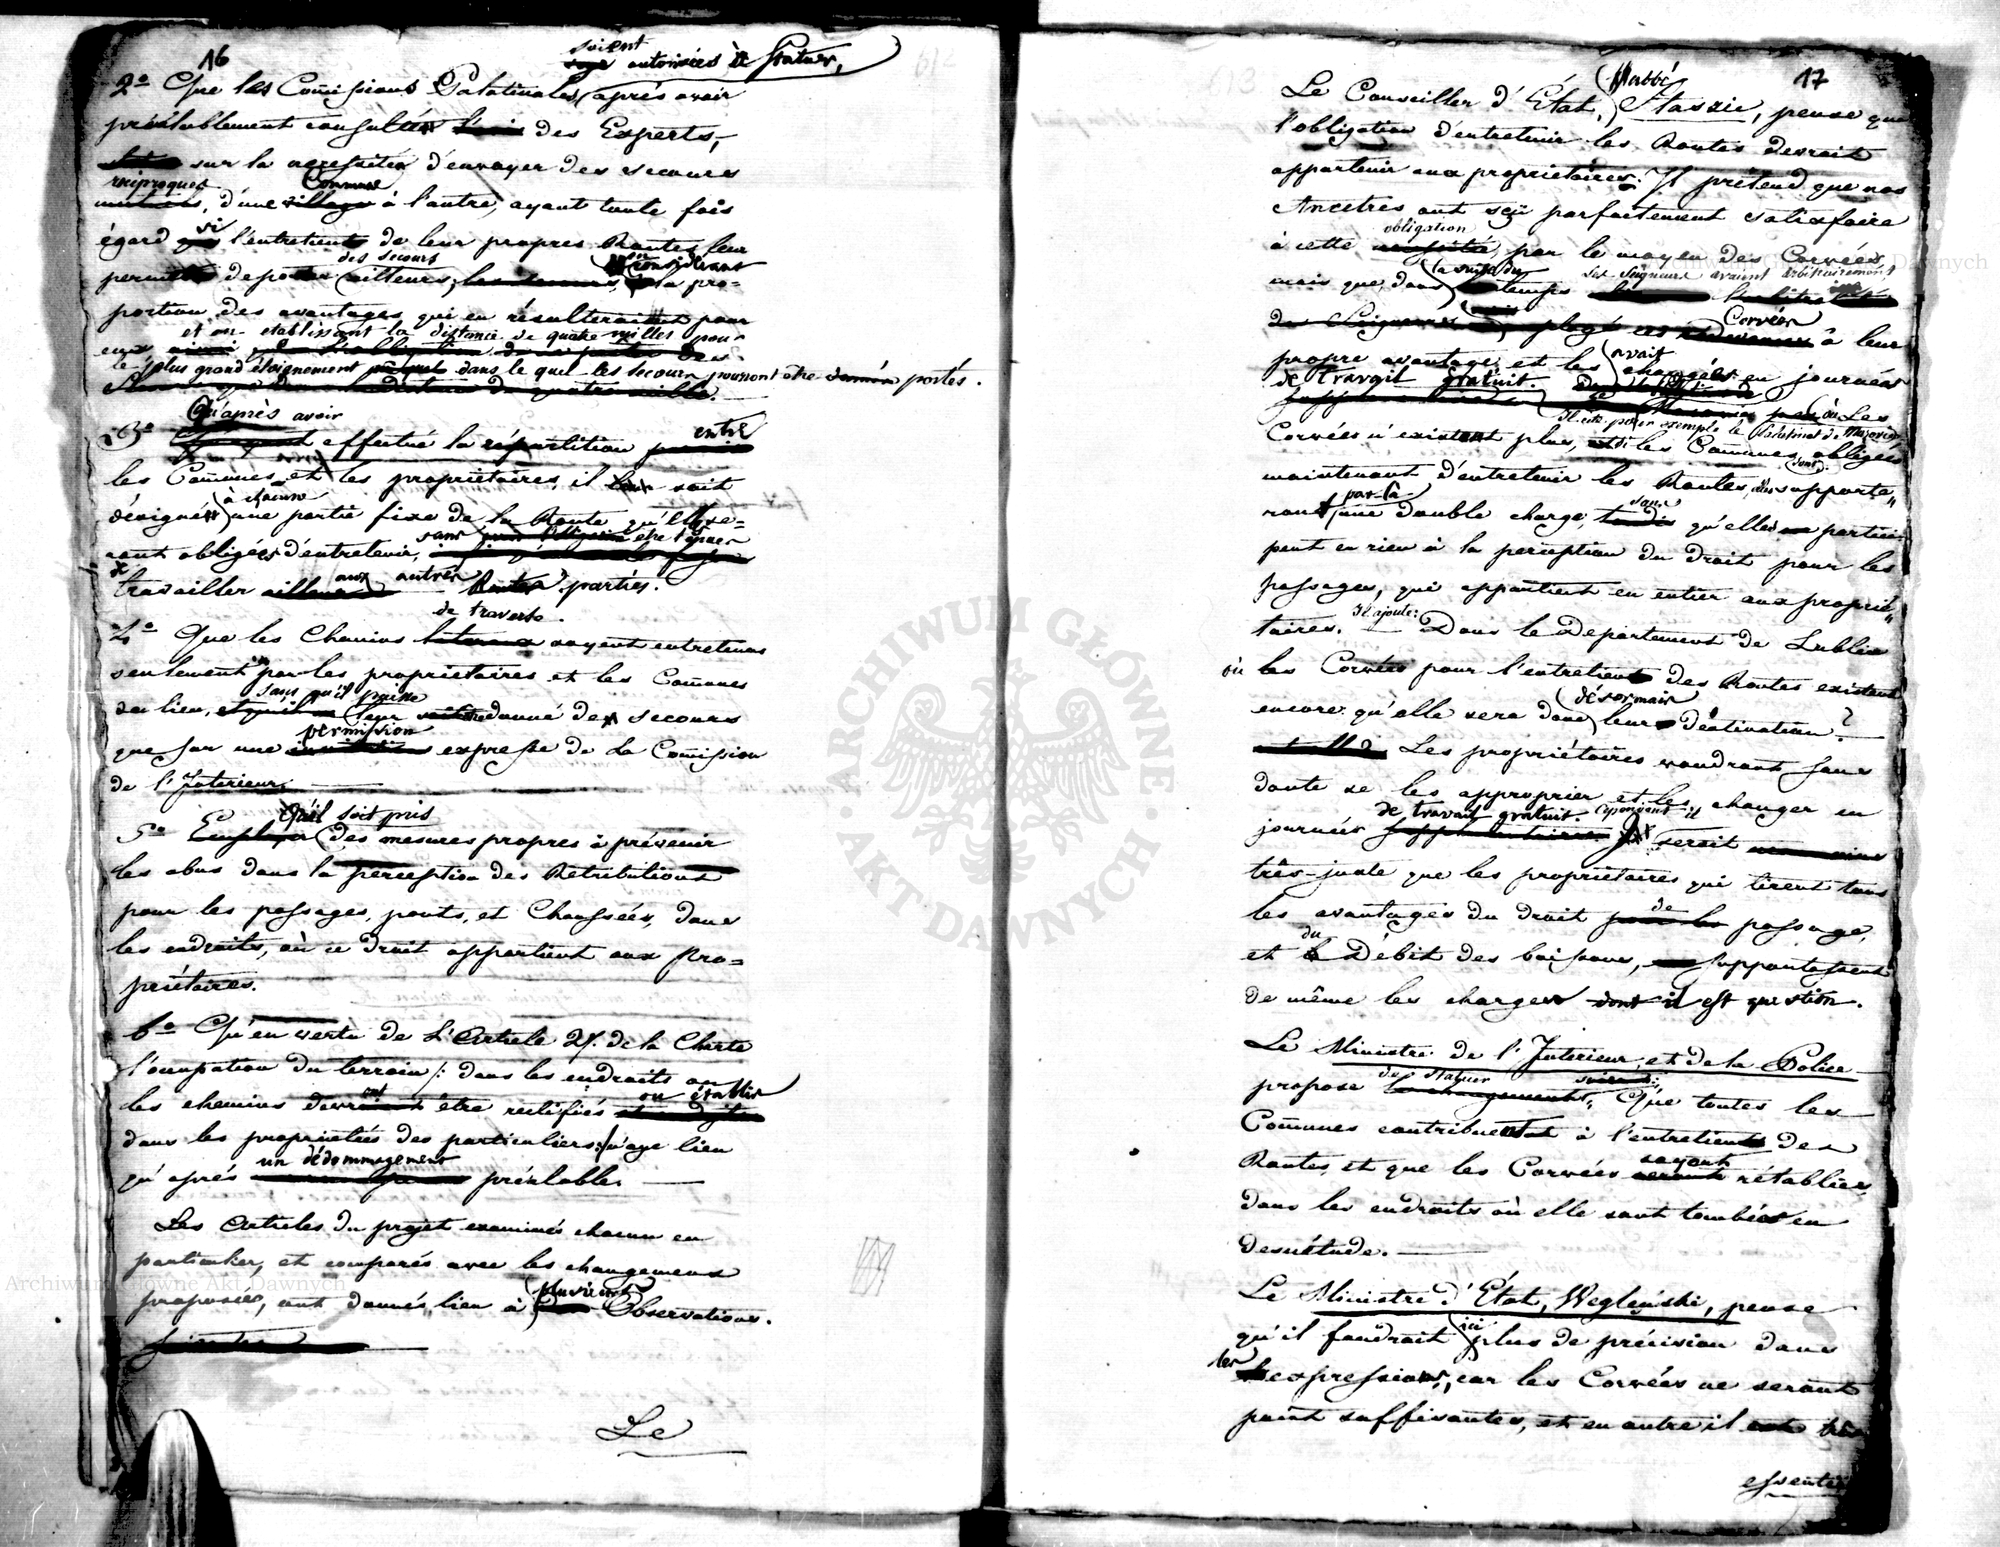 16
soient autorisées à statuer,
2º Que les Comissions Palatinales (après avoir
préalablement consulté des Experts,
sur la necessité d'envoyer des secours
reciproques, d'une Commune à l'autre, ayant toute fois
égard si l'entretient de leur propres Routes leur
permet de porter des secours ailleurs, en considérant la pro=
portion des avantages qui en résulteraient pour
eux et en etablissant la distance de quatre milles pour
le plus grand éloignement dans le quel les secours pourront être portés.
3º Qu'après avoir effectué la répartition entre
les Comunes et les propriétaires, il soit
désigné à chacune une partie fixe de la Route qu'elles se=
ront obligées d'entretenir, sans être tenues
de travailler aux autres parties.
4º Que les Chemins de traverse soyent entretenus
seulement par les propriétaires et les Comunes
du lieu, sans qu'il puisse leur être donné des secours
que sur une permission expresse de la Comission
de l'Interieur.
5º Qu'il soit pris des mesures propres à prévenir
les abus dans la perception des Retributions
pour les passages, ponts, et Chaussées, dans
les endroits, où ce droit appartient aux Pro=
priétaires.
6º Qu'en vertu de l'Article 27. de la Charte
l'occupation du terrain /: dans les endroits où
les chemins devront être rectifiés ou établis
dans les propriétés des particuliers :/ n'aye lieu
qu'après un dédommagement préalable.
Les Articles du projet examinés chacun en
particulier, et comparés avec les changemens
proposés, ont donnés lieu à plusieurs Observations.
Le
17
Le Conseiller d'État, l'Abbé Staszic, pense que
l'obligation d'entretenir les Routes devrait
appartenir aux propriétaires. Il prétend que nos
Ancetres ont sçu parfaitement satisfaire
à cette obligation par le moyen des Corvées,
mais que dans la suite du temps les Seigneurs avaient arbitrairement
Corvées à leur
propre avantage et les avait changées en journées
de travail gratuit. Les
Il cite pour exemple le Palatinat de Mazovie où
Corvées n'existent plus, et les Comunes obligées
maintenant d'entretenir les Routes, supporte=
ront par là une double charge, sans qu'elles partici
pent en rien à la perception du droit pour les
passages, qui appartient en entier aux proprié=
taires. Il ajoute: Dans le Département de Lublin
où les Corvées pour l'entretient des Routes existent
encore qu'elle sera donc désormais leur déstination?
Les propriétaires voudront sans
doute se les approprier et les changer en
journées de travail gratuit. Cependant il serait
très-juste que les propriétaires qui tirent tous
les avantages du droit de passage,
et du Débit des boissons, supportassent
de même les charges dont il est question.
Le Ministre de l'Interieur, et de la Police
propose de statuer Que toutes les
Comunes contribuent à l'entretient des
Routes, et que les Corvées soyent rétablies,
dans les endroits où elle sont tombées en
desuétude.
Le Ministre d'État, Węgleński, pense
qu'il faudrait ici plus de précision dans
les expressions, car les Corvées ne seront
point suffisantes, et en outre il est très
essentiel
ARCHIWUM GŁÓWNE AKT DAWNYCH
Archiwum Główne Akt Dawnych